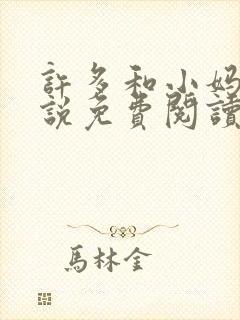 許多和小妈
說免費閱讀
馬林金